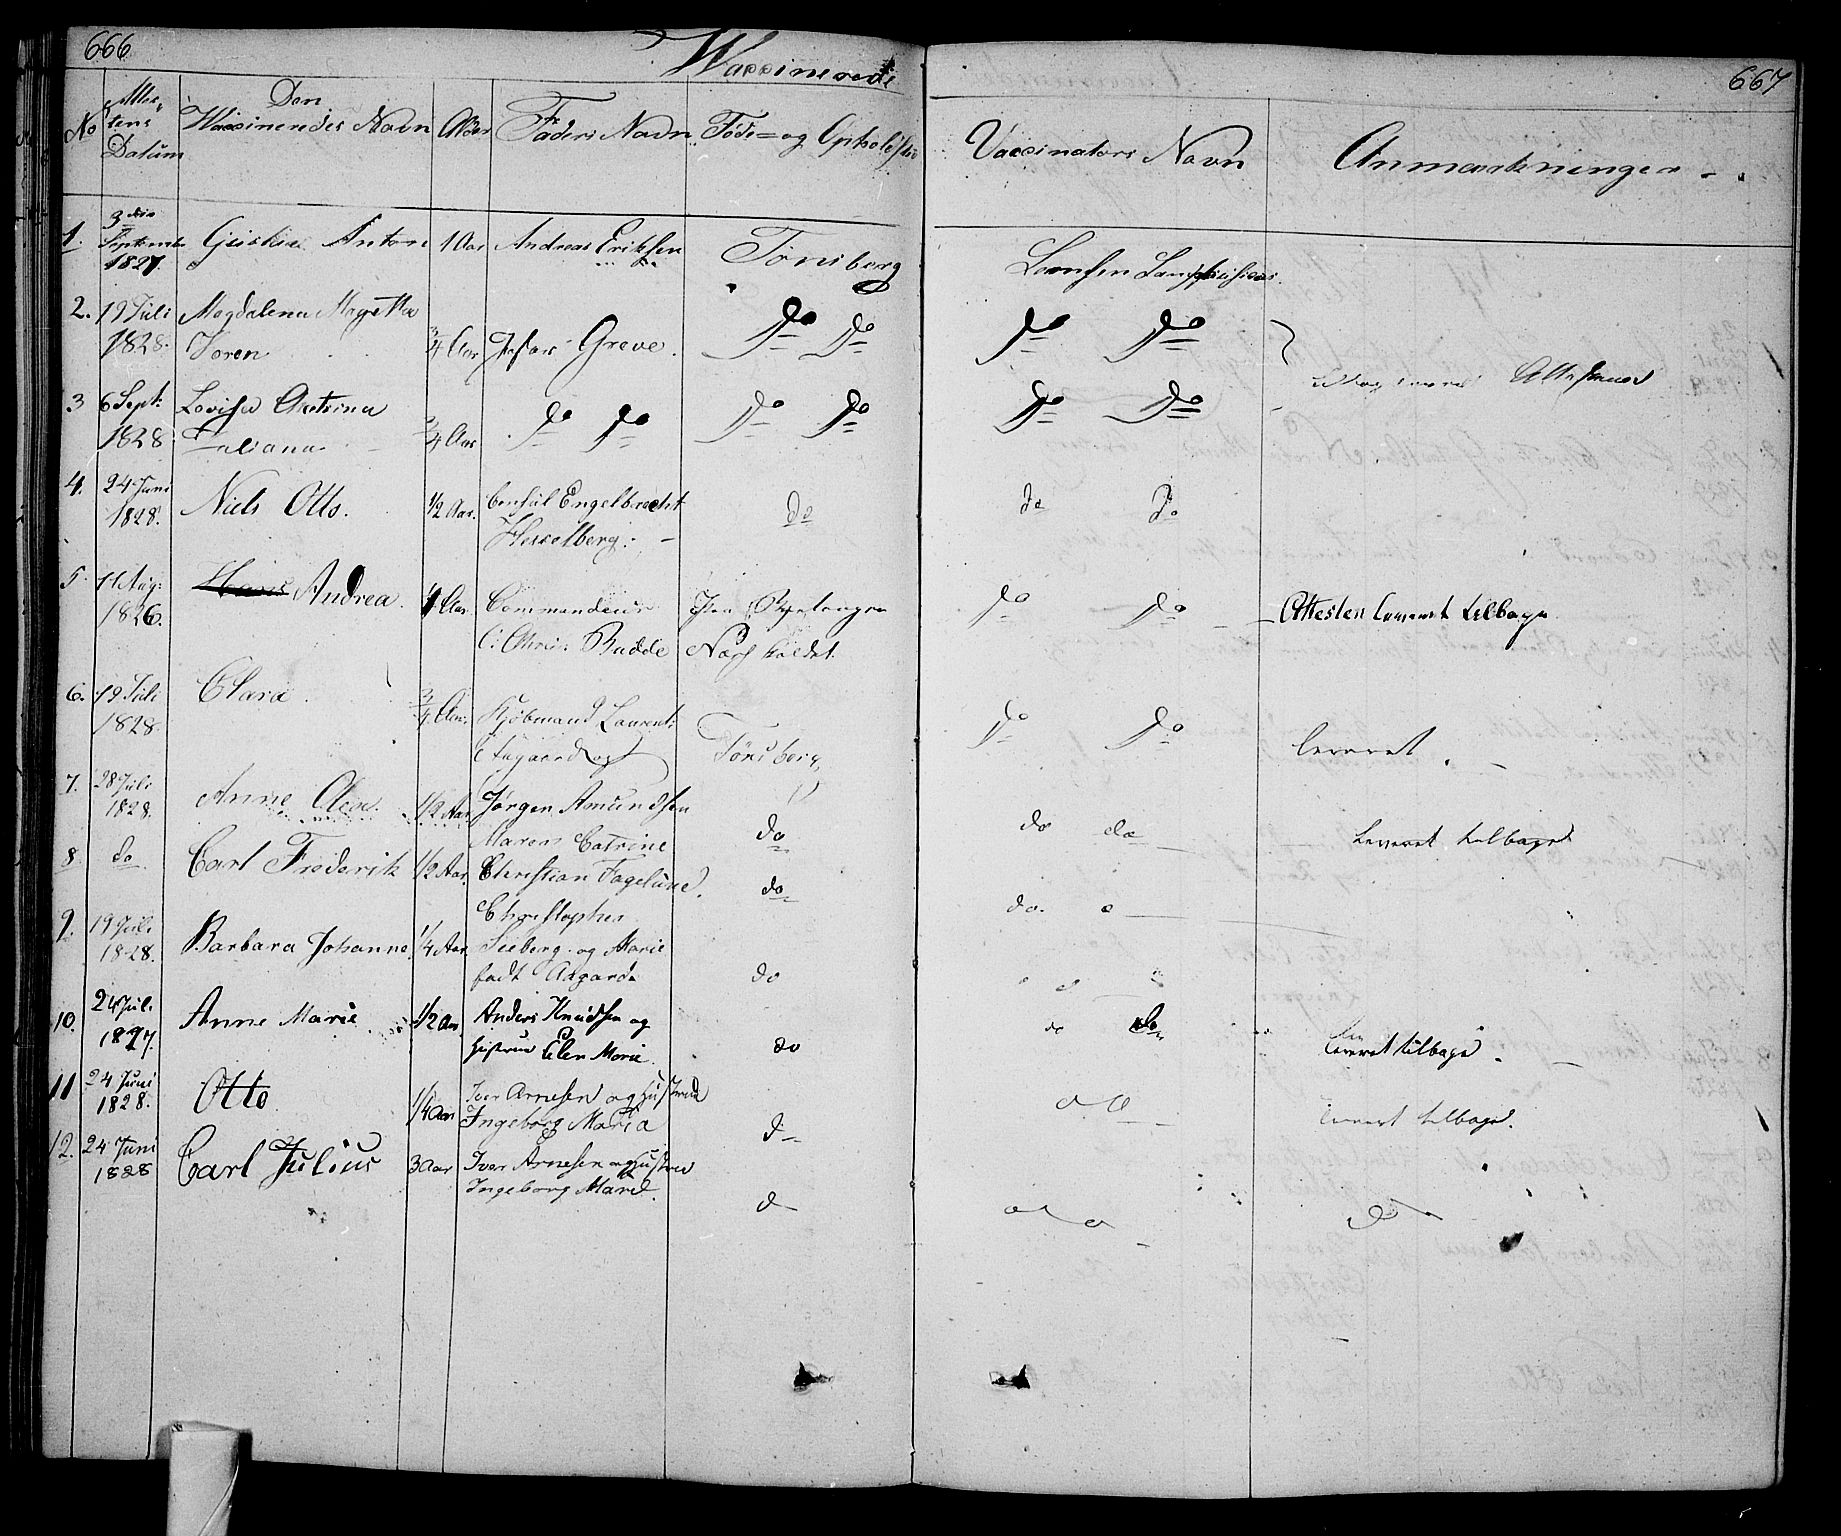 666
Waccinerede
667
No Attestens Datum
Den Waccineredes Navn
Alder
Faders Navn
Føde- og Opholdsted
Vaccinators Navn
Anmærkninger
1. 3die September 1827. Gustav Anton 1 Aar Andreas Eriksen Tønsberg
2. 19 Juli 1828. Magdalena Magretha Soren 3/4 Aar Greve. Do Do Do Do
3 6 Sept: 1828 Lovisa Catrina Juliana 3/4 Aar Do Do Do Do Do Do
4. 24 Juni 1828. Niels Otto. 1/2 Aar. Consul Engelbrecht Hesselberg: do do do
5. 11 Aug: 1826. Hans Andrea. 1 Aar. Commandeur C: Chris: Budde Do Do Attesten leveret tilbage
6. 19 Juli 1828. Clara. 3/4 Aar. Kjøbmand Laurent: Tønsberg Do Do leveret.
7. 28 Juli 1828. Anne Olea. 1/2 Aar Jørgen Amundsen Maren Catrine do do do leveret tilbage
8. do Carl Frederik 1/2 Aar. Christian Fagelund. do do.
9. 19 Juli 1828. Barbara Johanne 1/4 Aar Christopher Seeberg og Marie født Aagaard do
10. 24 Juli 1827. Anne Marie 1/2 Aar Anders Knudsen og Hustrue Elen Marie do do do leveret tilbage
11 24 Juni 1828. Otto 1/4 Aar Iver Arnesen og Hustrue Ingeborg Maria d leveret tilbage.
12. 24 Juni 1828 Carl Julius 3 Aar Iver Arnesen og Hustrue Ingeborg Marie. d